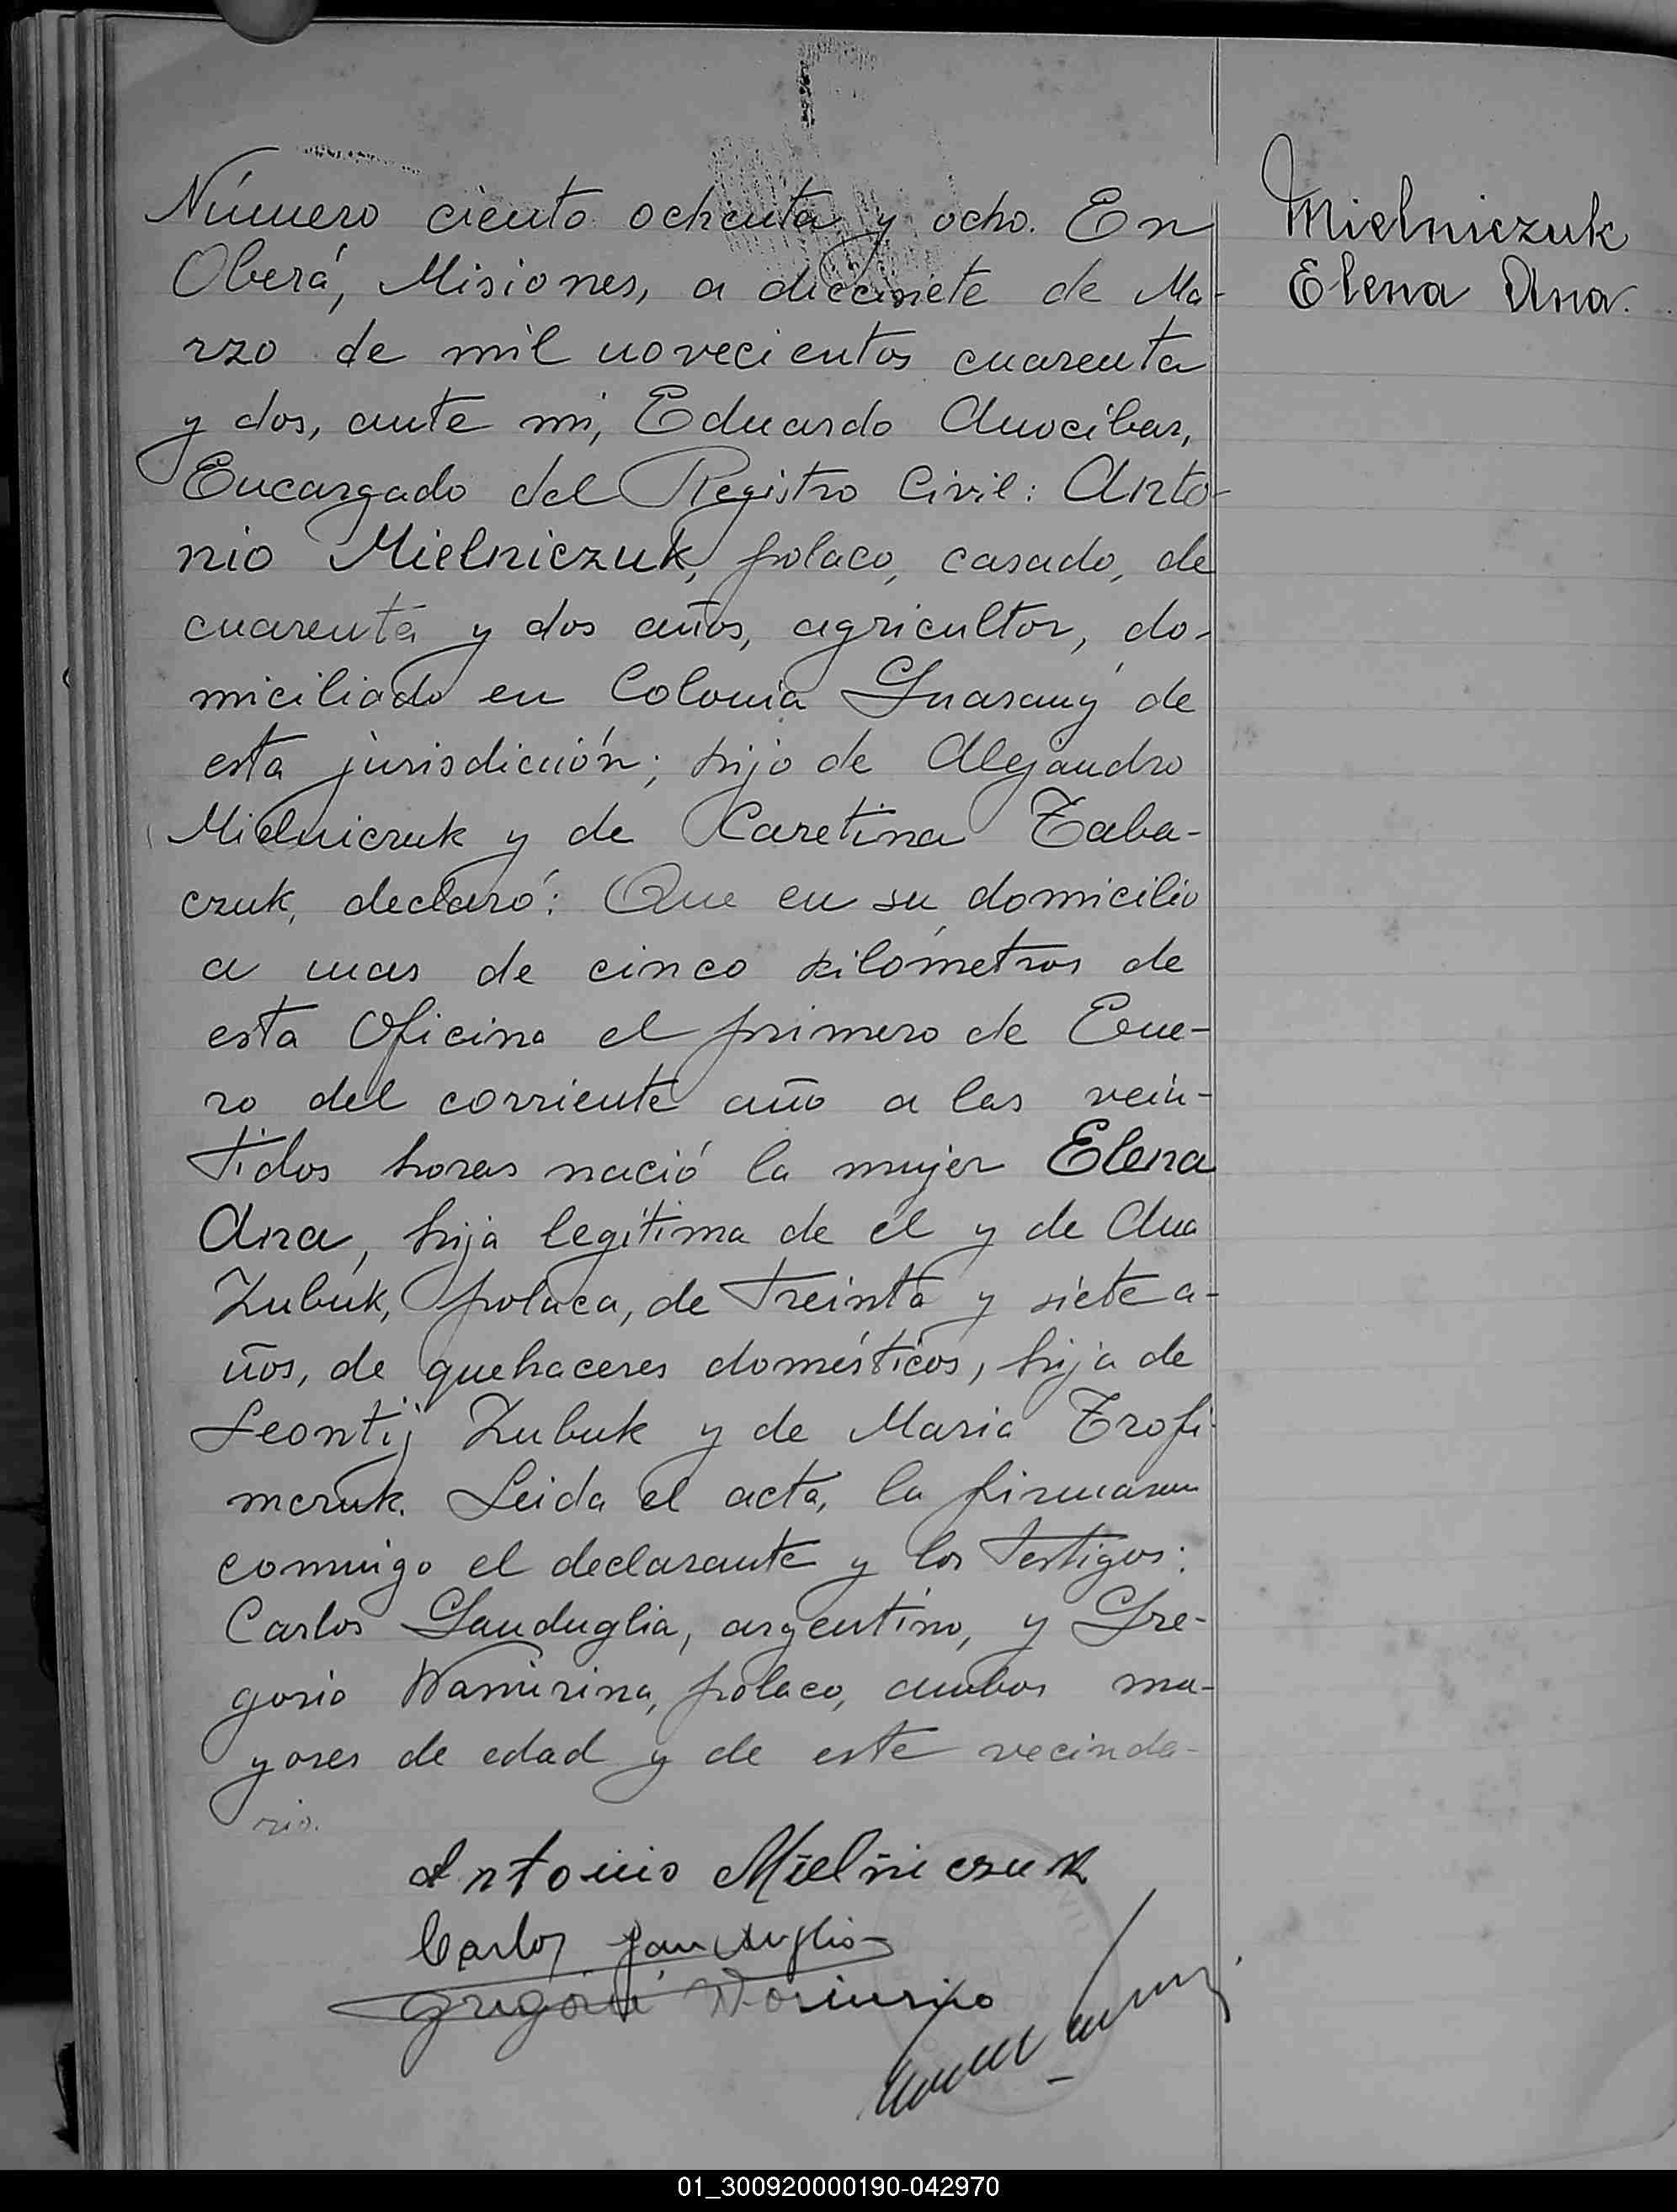 Número ciento ochenta y ocho. En
Oberá, Misiones, a diecisiete de Ma-
rzo de mil novecientos cuarenta
y dos, ante mi, Eduardo Anocibar,
Encargado del Registro Civil: Anto-
nio Mielniczuk, polaco, casado, de
cuarenta y dos años, agricultor, do-
miciliado en Colonia Guarany de
esta jurisdicción; hijo de Alejandro
Mielniczuk y de Karetina Taba-
czuk, declaró: Que en su domicilio
a mas de cinco kilómetros de
esta Oficina el primero de Ene-
ro del corriente año a las vein-
tidos horas nació la mujer Elena
Ana, hija legítima de él y de Ana
Zubuk, polaca, de treinta y siete a-
ños, de quehaceres domésticos, hija de
Leontij Zubuk y de Maria Trofi-
mczuk. Leida el acta, la firmaron
conmigo el declarante y los testigos:
Carlos Sanduglia, argentino, y Gre-
gorio Wamirina, polaco, ambos ma-
yores de edad y de este vecinda-
rio.
Antonio Mielniczuk
Carlos Sanduglia
Mielniczuk
Elena Ana.
01_300920000190-042970